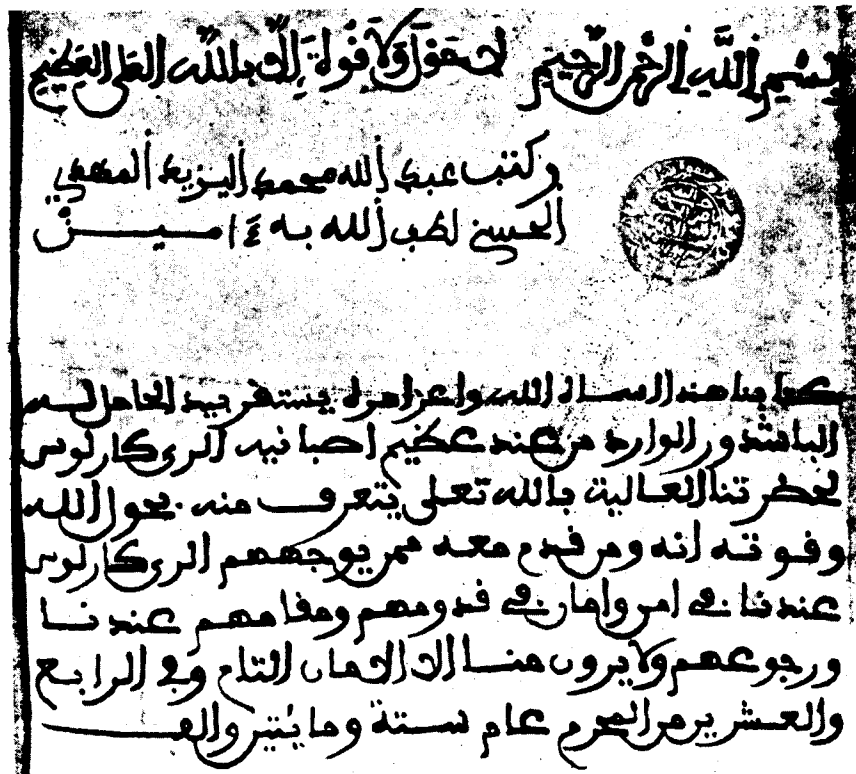 بسم الله الرحمن الرحيم لا حول ولا قوة إلا بالله العلي العظيم
وكتب عبد الله محمد اليزيد المهدي
الحسني لطف الله به ءاميـــن
كتابنا هذا اسماه الله واعز امره يستقر بيد الحامل لـه
الباشدور الوارد من عند عظيم اصبانيه الري كارلوس
لحضرتنا العالية بالله تعلى يتعرف منه بحول الله
وقوته انه ومن قدم معه ممن يوجههم الري كارلوس
عندنا في امن وامان في قدومهم ومقامهم عندنــا
ورجوعهم ولا يرون منــا الا الامان التام وفي الرابـع
والعشرين من المحرم عام ستة ومايتين والف